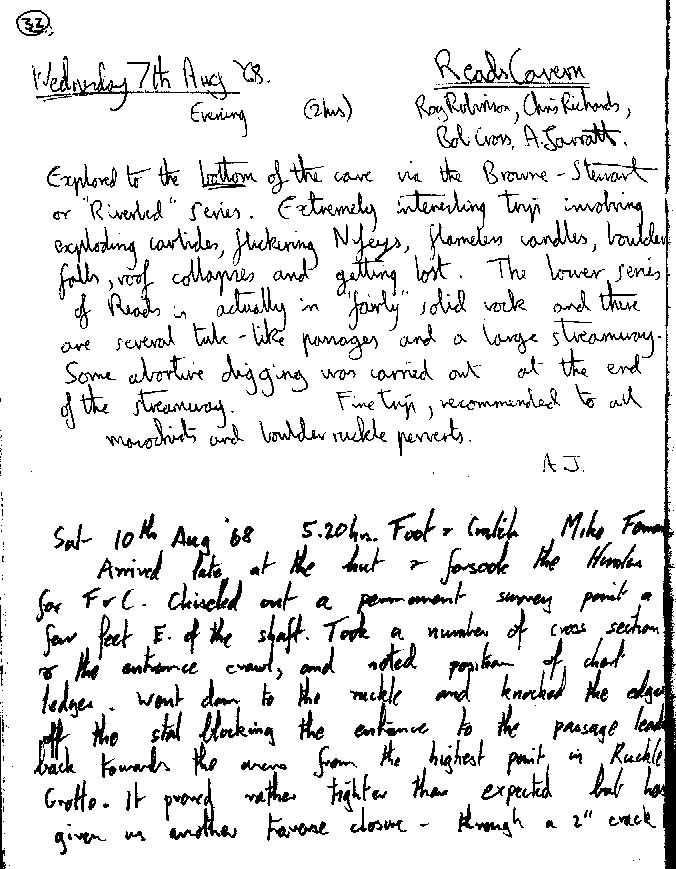 33
Wednesday 7th Aug '68. Reads Cavern
Evening (2hrs) Roy Robinson, Chris Richards,
Bob Cross, A. Jarratt.
Explored to the bottom of the cave via the Browne-Stewart
or "Riverbed" series. Extremely interesting trip involving
exploding carbides, flickering Nifeys, flameless candles, boulder
falls, roof collapses and getting lost. The lower series
of Reads is actually in "fairly" solid rock and there
are several tube-like passages and a large streamway.
Some abortive digging was carried out at the end
of the streamway. Fine trip, recommended to all
masochists and boulder ruckle perverts.
A J.
Sat 10th Aug '68 5.20hrs. Foot & Crutch Mike
Arrived late at the hut & forsook the
for F & C. Chiseled out a permanent survey point a
few feet E. of the shaft. Took a number of cross section
the entrance crawl, and noted position of chert
ledges. Went down to the ruckle and knocked the edges
off the stal blocking the entrance to the passage lead
back towards the from the highest point in Ruckle
Grotto. It proved rather tighter than expected but has
given us another traverse closure - through a 2" crack